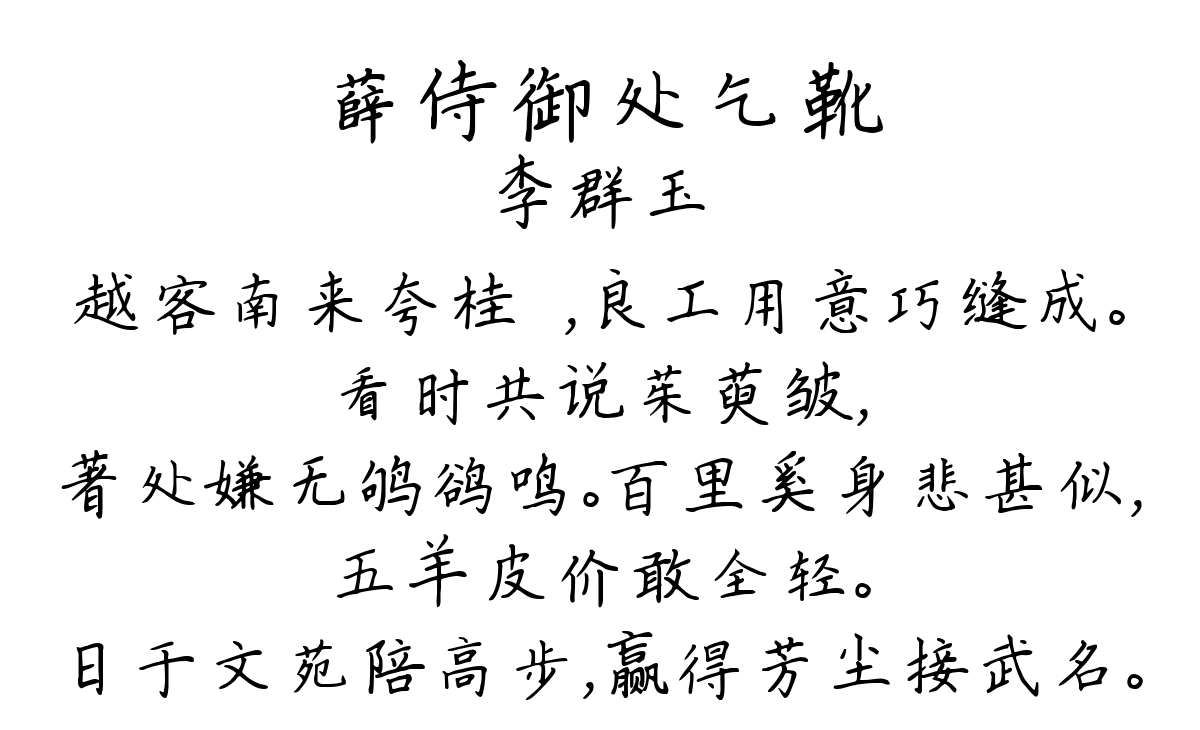 薛侍御处乞靴
李群玉
越客南来夸桂 ,良工用意巧缝成。
看时共说茱萸皱,
著处嫌无鸲鹆鸣。百里奚身悲甚似,
五羊皮价敢全轻。
日于文苑陪高步,赢得芳尘接武名。